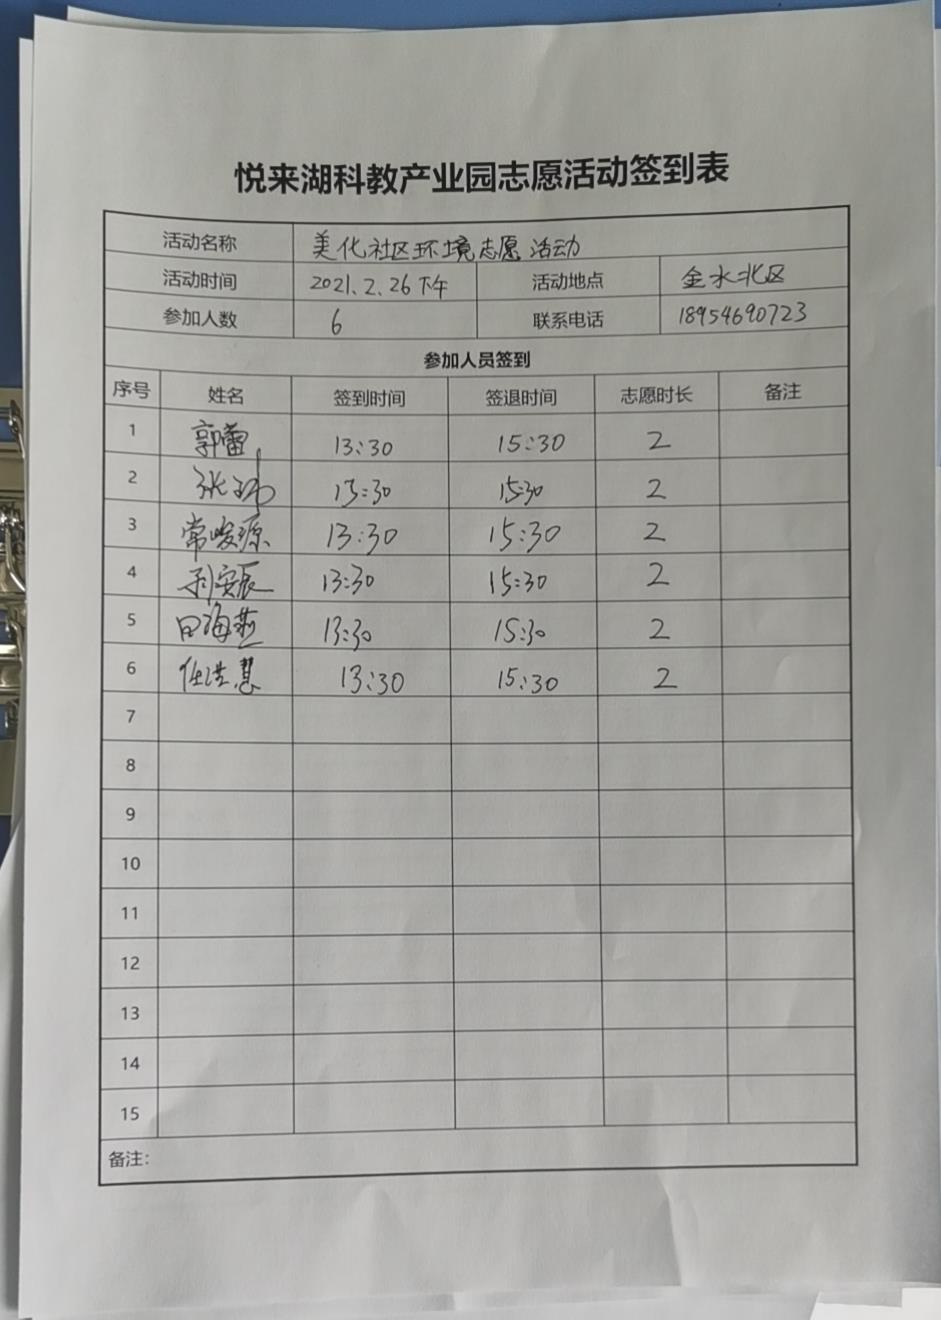 悦来湖科教产业园志愿活动签到表
活动名称 美化社区环境志愿活动
活动时间 2021.2.26下午 活动地点 金水北区
参加人数 6 联系电话 18954690723
参加人员签到
序号 姓名 签到时间 签退时间 志愿时长 备注
1 郭蕾 13:30 15:30 2
2 张玮 13:30 15:30 2
3 常峻源 13:30 15:30 2
4 安辰 13:30 15:30 2
5 田海燕 13:30 15:30 2
6 任洪慧 13:30 15:30 2
7
8
9
10
11
12
13
14
15
备注: